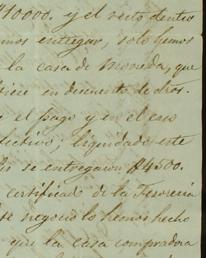 $10000. y el resto dentro
hemos entregar, solo hemos
la casa de Moneda, que
en descuento de dros.
y el pago y en el caso
efectivo; liquidado este
se entregaron $4500.
certificado de la Tesoreria
este negocio lo hemos hecho
que la casa compradora